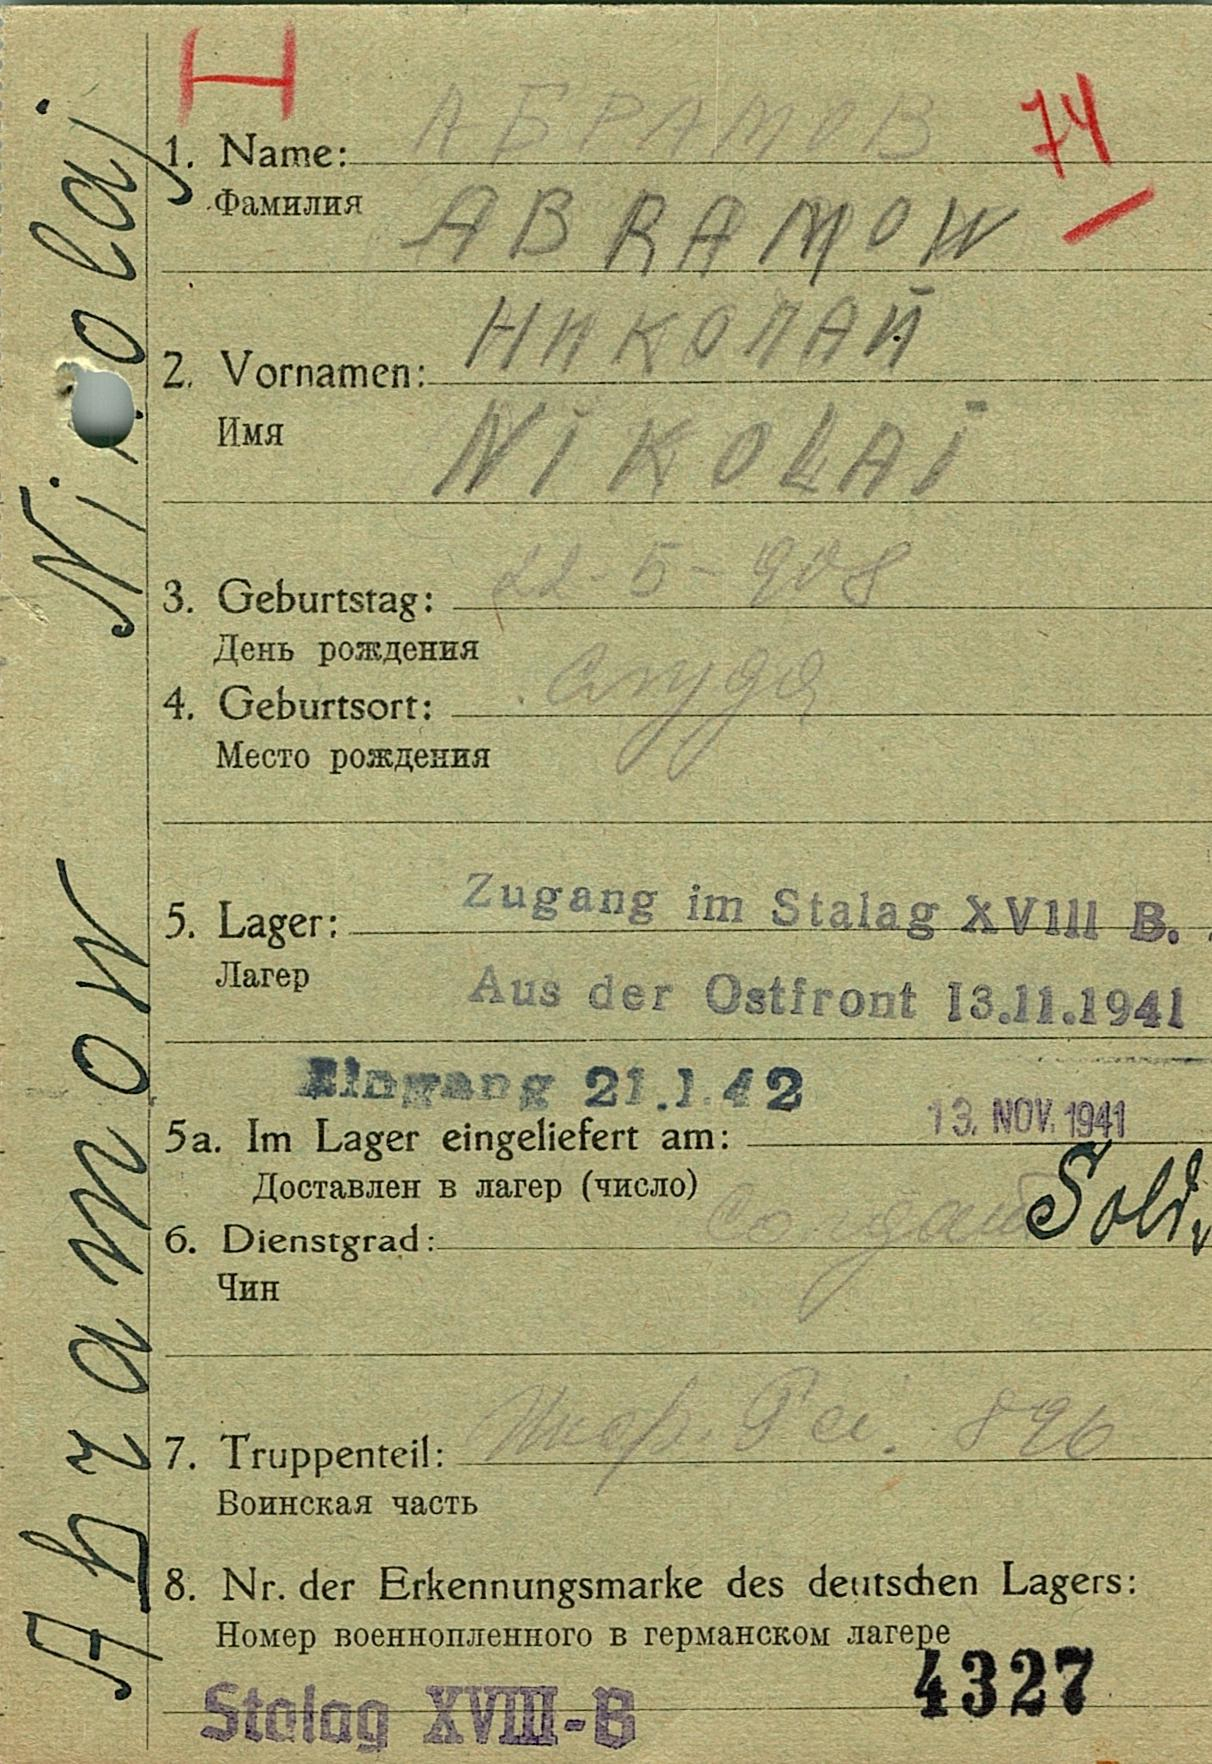 Abramow Nikolaj
H
74
АБРАМОВ
1. Name:
Фамилия
ABRAMOW
НИКОЛАЙ
2. Vornamen:
Имя
NIKOLAI
22-5-908
3. Geburtstag:
День рождения
4. Geburtsort: Слуда
Место рождения
Zugang im Stalag XVIII B.
5. Lager:
Лагер
Aus der Ostfront 13.11.1941
Eingang 21.1.42
13. NOV. 1941
5a. Im Lager eingeliefert am:
Доставлен в лагер (число)
6. Dienstgrad: Солдат Sold.
Чин
7. Truppenteil: 896
Воинская часть
8. Nr. der Erkennungsmarke des deutschen Lagers:
Номер военнопленного в германском лагере
4327
Stalag XVIII-B